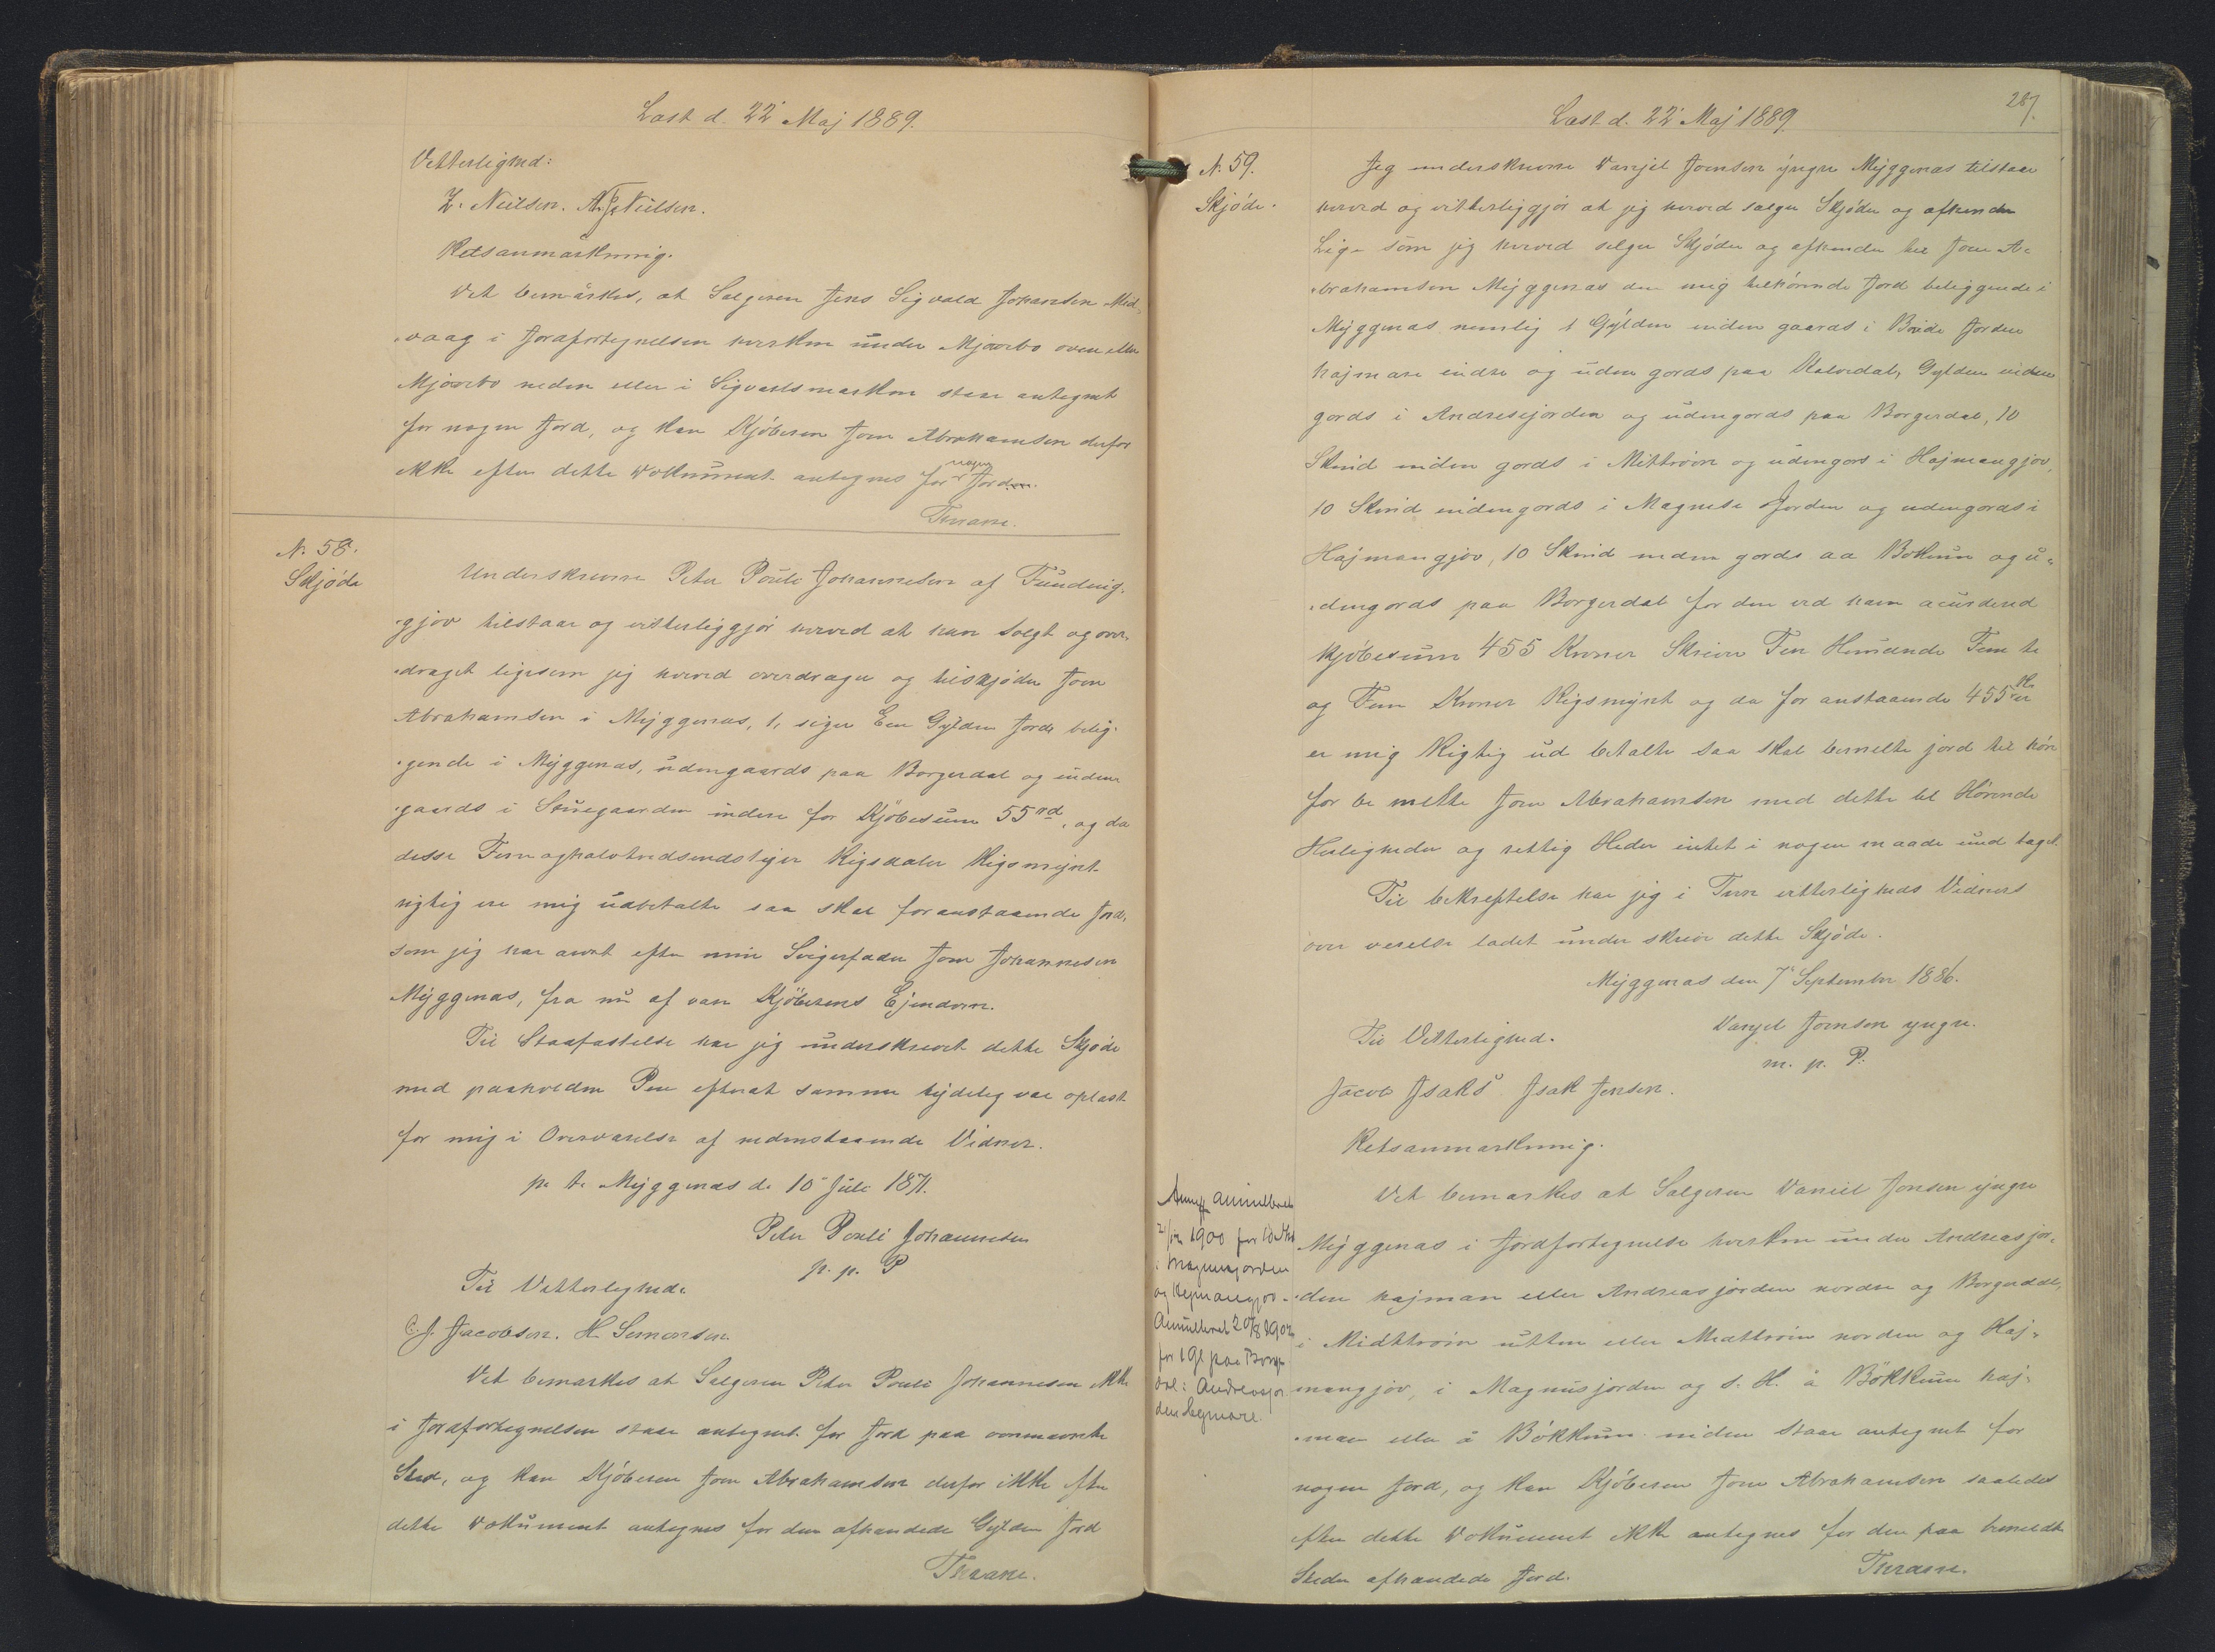 Læst d. 22' Maj 1889.
Vitterlighed:
Z. Nielsen. Nielsen.
Retsanmærkning.
Det bemærkes, at Sælgeren Jens Sigvald Johansen Mid„
„vaag i Jordfortegnelsen hverken under Mjøvebo oven eller
Mjøvebo neden eller i Sigvartsmarken staar antegnet
for nogen Jord, og kan Kjöberen Joen Abrahamsen derfor
ikke efter dette Dokument antegnes for nogen Jord.
Thrane.
N. 58.
Skjøde
Underskrevne Peter Pouli Johannesen af Funding„
„gjov tilstaar og vitterliggjör herved at have solgt og over„
„draget ligesom jeg herved overdrager og tilskjøder Joen
Abrahamsen i Myggenæs, 1, siger Een Gylden Jord belig„
„gende i Myggenæs, udengaards paa Borgardal og inden
„gaards i Stuegaarden indere for Kjöbesum 55 rd, og da
disse Fem oghalvtredsendstyve Rigsdaler Rigsmynt
rigtig ere mig udbetalte saa skal foranstaaende Jord,
som jeg har arvet efter min Svigerfader Joen Johannesen
Myggenæs, fra nu af være Kjöberens Ejendom.
Til Stadfæstelse har jeg underskrevet dette Skjøde
med paaholden Pen efterat samme tydelig var oplæst
for mig i Overværelse af nedenstaaende Vidner.
p. t. Myggenæs d. 10' Juli 1871.
Peter Pouli Johannesen
p. p. P
Til Vitterlighed.
C. J. Jacobsen. H. Semonsen.
Det bemærkes at Sælgeren Peter Pouli Johannesen ikke
i Jordfortegnelsen staar antegnet for Jord paa ovennævnte
Sted, og kan Kjöberen Joen Abrahamsen derfor ikke efter
dette Dokument antegnes for den afhændede Gylden Jord
Thrane.
Læst d. 22' Maj 1889.
287.
N. 59.
Skjøde.
Jeg underskrevne Danjel Joensen yngre Myggenæs tilstaar
herved og vitterliggjör at jeg herved sælger Skjöder og afhender
Lige som jeg herved selger Skjöder og afhender til Joen A„
„brahamsen Myggenæs den mig tilhörende Jord beliggende i
Myggenæs nemlig 1 Gylden inden gaards i Jorden
hajmare indre og uden gords paa Kalvedal, Gylden inden
gords i Andresejorden og udengords paa Borgerdal, 10
Skind inden gords i Mittröin og udengors i Hajmangjov,
10 Skind indengords i Magnese Jorden og udengords i
Hajmangjov, 10 Skind inden gords aa Bökum og u„
„dengords paa Borgerdal for den ved ham acurdered
Kjöbesum 455 Kroner Skriver Fire Hundrede Fem te
og Fem Kroner Rigsmynt og da for anstaaende 455 Kr
er mig Rigtig ud betalte saa skal bemelte jord til hör
for be melte Joen Abrahamsen med dette til Hörende
Herligheder og rettig Heder intet i nogen maade und taget.
Til bekreftelse har jeg i Tven vitterligheds Vidners
over verelse ladet under skrive dette Skjøde.
Myggenæs den 7' September 1886.
Danjel Joensen yngre.
m. p. P.
Til Vitterlighed.
Jacob Isaks' Isak Jensen.
Retsanmærkning.
Det bemærkes at Sælgeren Daniel Jonsen yngre
Myggenæs i Jordfortegnelse hverken under Andreasjor„
„den hajman eller Andreasjorden nordre og Borgardal,
i Midttröin utten eller Midttröin norden og Haj„
mangjov, i Magnusjorden og s. St. å Bökkum haj„
„man eller å Bökkum niden staar antegnet for
nogen Jord, og kan Kjöberen Joen Abrahamsen saaledes
efter dette Dokument ikke antegnes for den paa bemeldte
Steder afhændede Jord.
Thrane.
annulleret
1900 for 10 Sk
i Magnusjorden
og Hejmangjov -
Annulleret 20/8 1902
for 1 Gl. paa Borga
dal: Andreasjor
den hejmare.